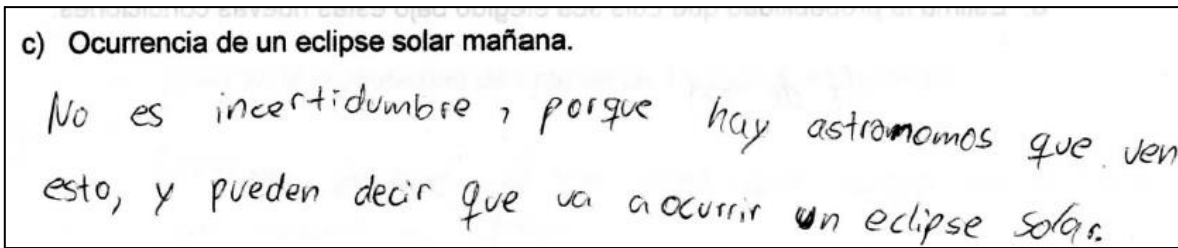 c) Ocurrencia de un eclipse solar mañana.
No es incertidumbre, porque hay astromomos que ven
esto, y pueden decir que va a ocurrir un eclipse solar.